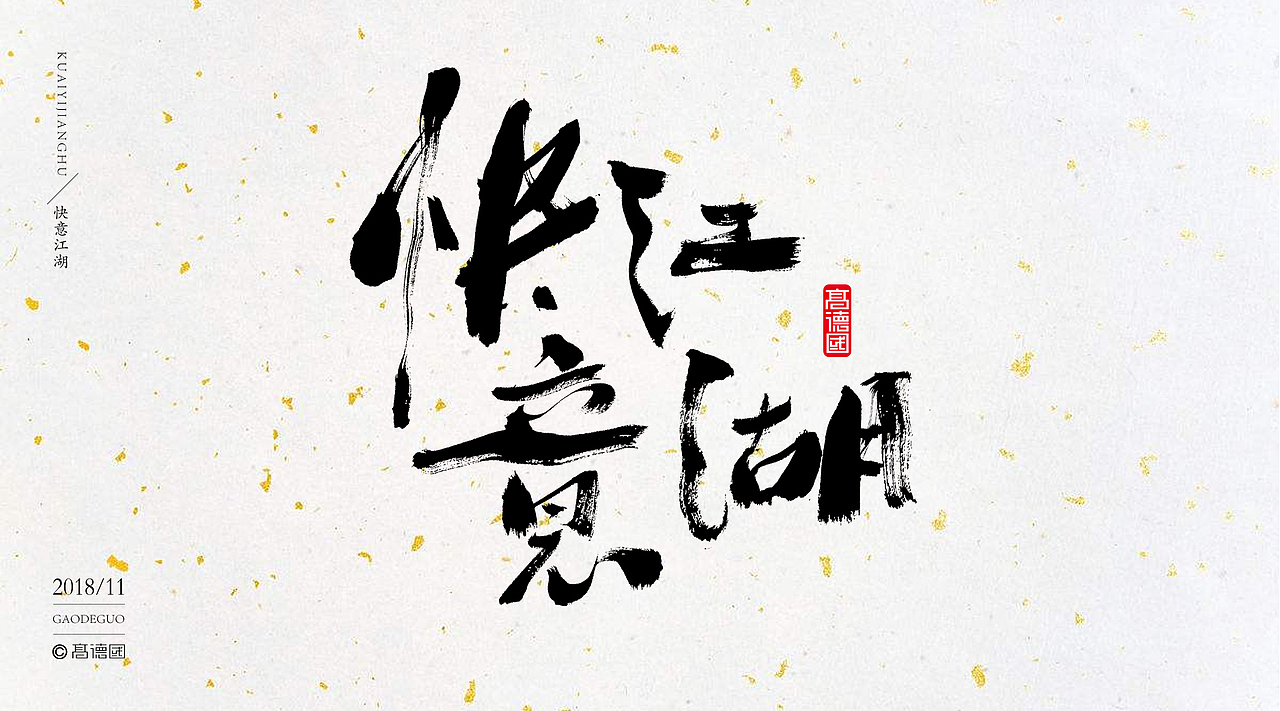 KUAIYIJIANGHU
快意江湖
快意
江湖
髙德國
2018/11
GAODEGUO
©髙德國